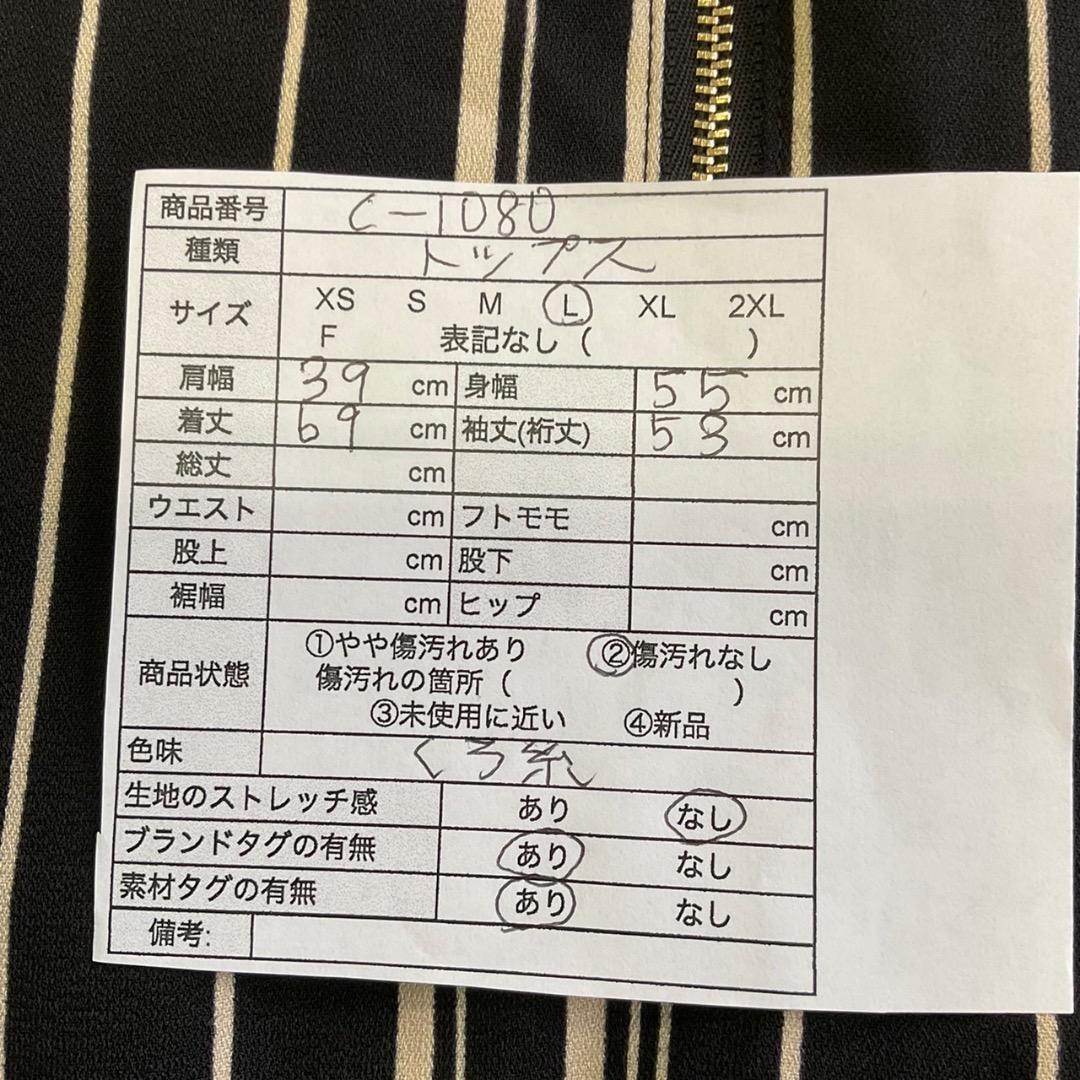 商品番号 C-1080
種類 トップス
サイズ XS S M L XL 2XL
F 表記なし ( )
肩幅 39 cm 身幅 55 cm
着丈 69 cm 袖丈(裄丈) 53 cm
総丈 cm
ウエスト cm フトモモ cm
股上 cm 股下 cm
裾幅 cm ヒップ cm
商品状態 ①やや傷汚れあり ②傷汚れなし
傷汚れの箇所 ( )
③未使用に近い ④新品
色味 くろ系
生地のストレッチ感 あり なし
ブランドタグの有無 あり なし
素材タグの有無 あり なし
備考: